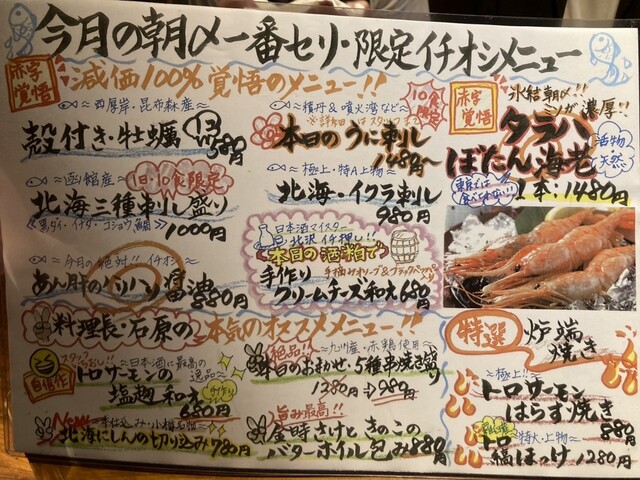 今月の朝〆一番セリ・限定イチオシメニュー
赤字覚悟
減価100%覚悟のメニュー!!
〜西厚岸・昆布森産〜
殻付き・牡蠣
580円
〜函館産〜
1日・10食限定
北海三種刺し盛り
《黒ダイ・イナダ・コショウ鯛》
1000円
〜今月の絶対!!イチオシ〜
あん肝のパリパリ醤油
880円
〜積丹&噴火湾など〜
10食限定
※詳細はスタッフまで
本日のうに刺し
1480円〜
〜極上・特大上物〜
北海・イクラ刺し
980円
日本酒マイスター
北沢イチ押し!!
本日の酒粕で
手作り
手摘みオリーブ&ブラックペッパー
クリームチーズ和え680円
赤字覚悟
氷結朝〆!!
ミソが濃厚!!
タラバ
ぼたん海老
活物
天然
東京では食べられない!!
1本:1480円
料理長・石原の本気のオススメメニュー!!
自信作
〜日本酒に最高の逸品〜
トロサーモンの
塩麹和え
手作り
680円
New
〜本仕込み・小樽名物〜
北海にしんの切り込み780円
絶品!!
〜九州産・赤鶏使用〜
本日のおまかせ・5種串焼き盛り
1280円→980円
旨み最高!!
金時さけときのこの
バターホイル包み880円
特選
炉端焼き
〜極上!!〜
トロサーモン
はらす焼き
880円
〜特大・上物〜
トロ
縞ほっけ
1280円